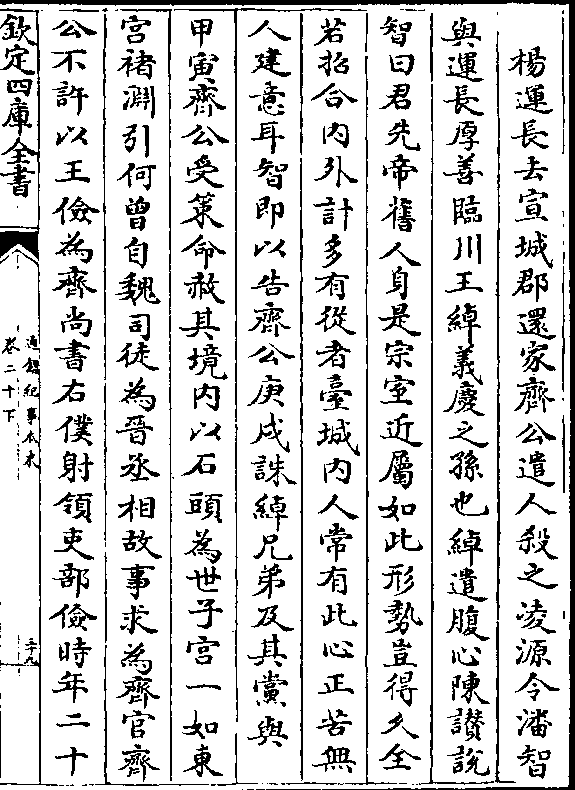 楊運長去宣城郡還家齊公遣人殺之凌源令潘智
與運長厚善臨川王綽義慶之孫也綽遣腹心陳讃說
智曰君先帝舊人身是宗室近屬如此形勢豈得久全
若招合内外計多有從者臺城内人常有此心正苦無
人建意耳智即以告齊公庚戌誅綽兄弟及其黨與
甲寅齊公受策命赦其境内以石頭為世子宫一如東
宫褚淵引何曾自魏司徒為晉丞相故事求為齊官齊
公不許以王儉為齊尚書右僕射領吏部儉時年二十
欽定四庫全書
通鑑紀事本末
卷二十下
三十九